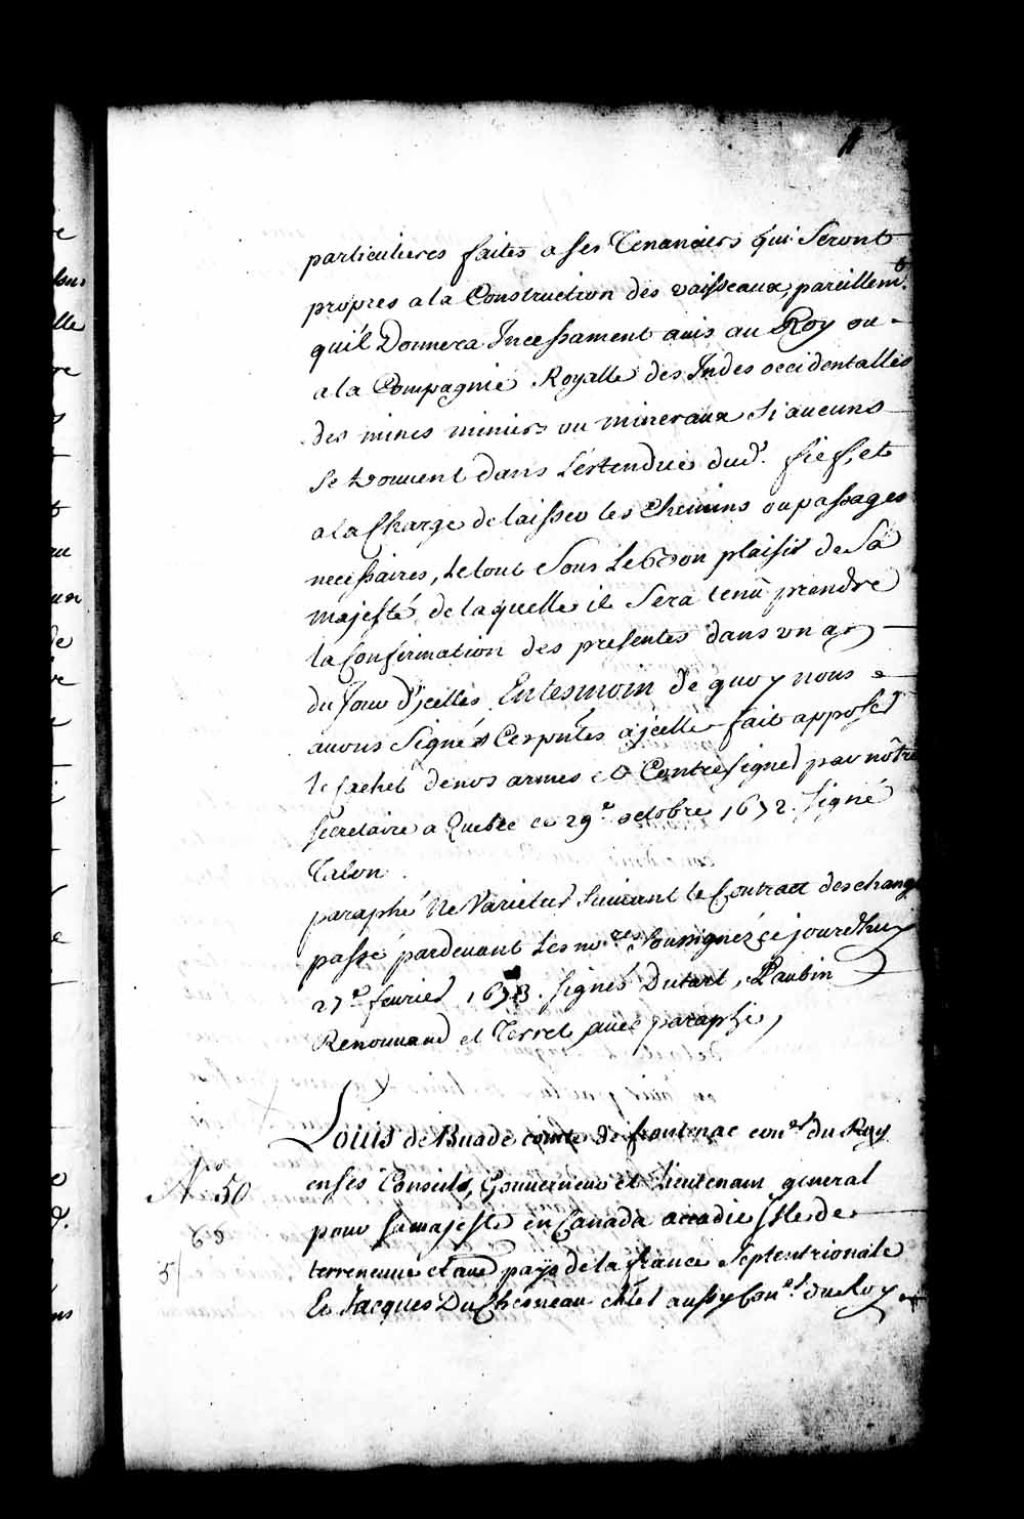 11
particulieres faites a ses Tenanciers qui Seront
propres a la Construction des vaisseaux, pareillemt.
quil Donnera Incessament auis au Roy ou
a la Compagnie Royalle des Indes occidentalles
des mines miniers ou mineraux Si aucuns
se trouuent dans L'estendue dud. fief, et
a la Charge de laisser les Chemins ou passages
necessaires, Le tout Sous Le Bon plaisir de Sa
majesté, de laquelle il Sera tenû prendre
la Confirmation des presentes dans vn an
du Jour D'jcelles. En tesmoin de quoy nous
auons Signé Ces pntes a jcelle fait apposer
le Cachet de nos armes et Contresigner par nôtre
secretaire a Quebec ce 29e. octobre 1672. Signé
Talon.
paraphé Ne Varietur Suiuant le Contract deschange
passé pardeuant Les nores. Soussignéz ce jourdhuy
27e. feurier 1673. signés Dutart, Paubin
Renouuard et Terret auec paraphe,
Louis de Buade comte de frontenac coner. du Roy
en ses Conseils, Gouuerneur et Lieutenant general
pour Sa majesté en Canada accadie Isle de
No. 50
terreneuue et aue pays de la france Septentrionale
5/
Et Jacques DuChesneau chlr aussy Coner. du Roy